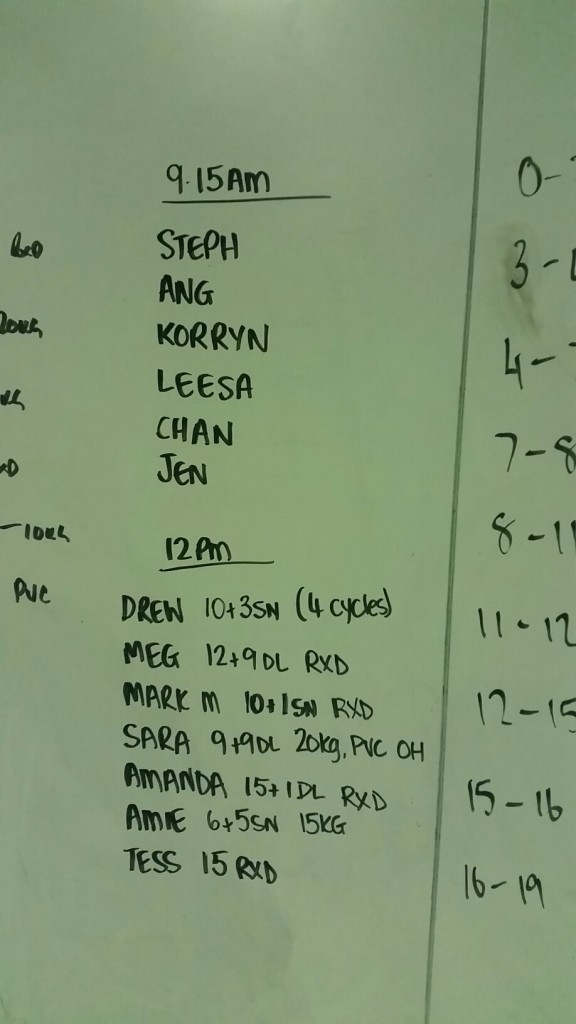 9.15AM
STEPH
ANG
KORRYN
LEESA
CHAN
JEN
12PM
DREW 10+3SN (4 cycles)
MEG 12+9DL RXD
MARK M 10+1SN RXD
SARA 9+9DL 20kg, PVC OH
AMANDA 15+1DL RXD
AMIE 6+5SN 15KG
TESS 15 RXD
-10KG
PVC
0-
3-
4-
7-8
8-11
11-12
12-15
15-16
16-19